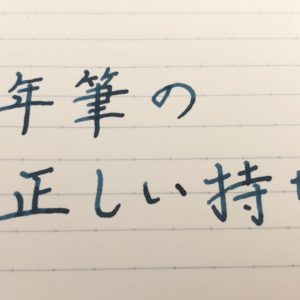 年筆の
正しい持